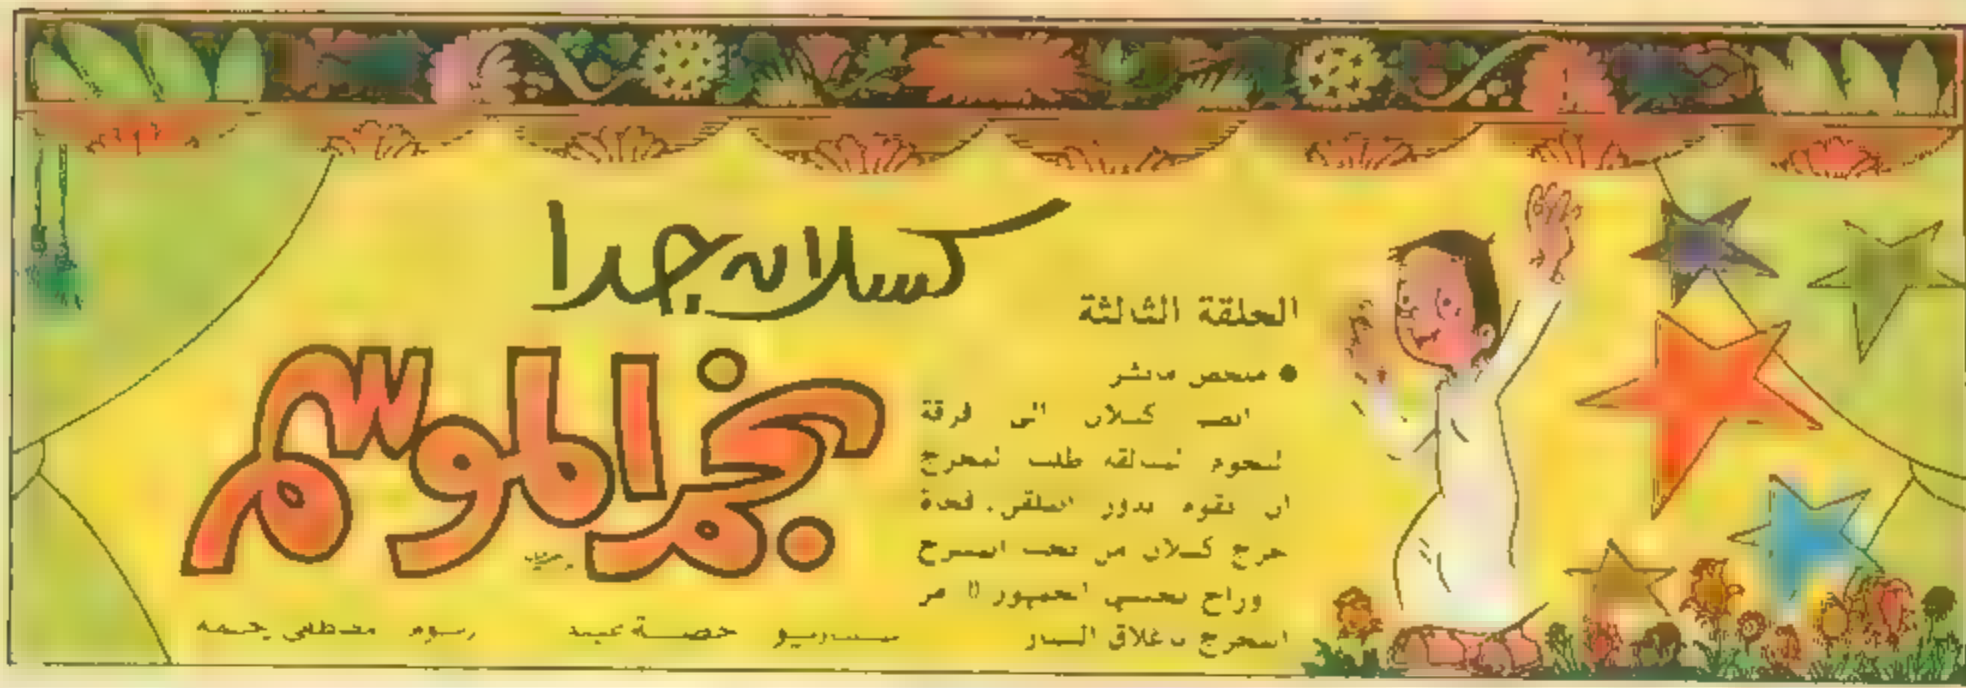 كسلان جدا
نجم الموسم
الحلقة الثالثة
● ملخص ما نشر
انضم كسلان الى فرقة
النجوم
طلب المخرج
ان يقوم بدور الملقن. فجأة
خرج كسلان من تحت المسرح
وراح يحيي الجمهور
المخرج باغلاق الستار
سيناريو حصة
رسوم مصطفى رحمة